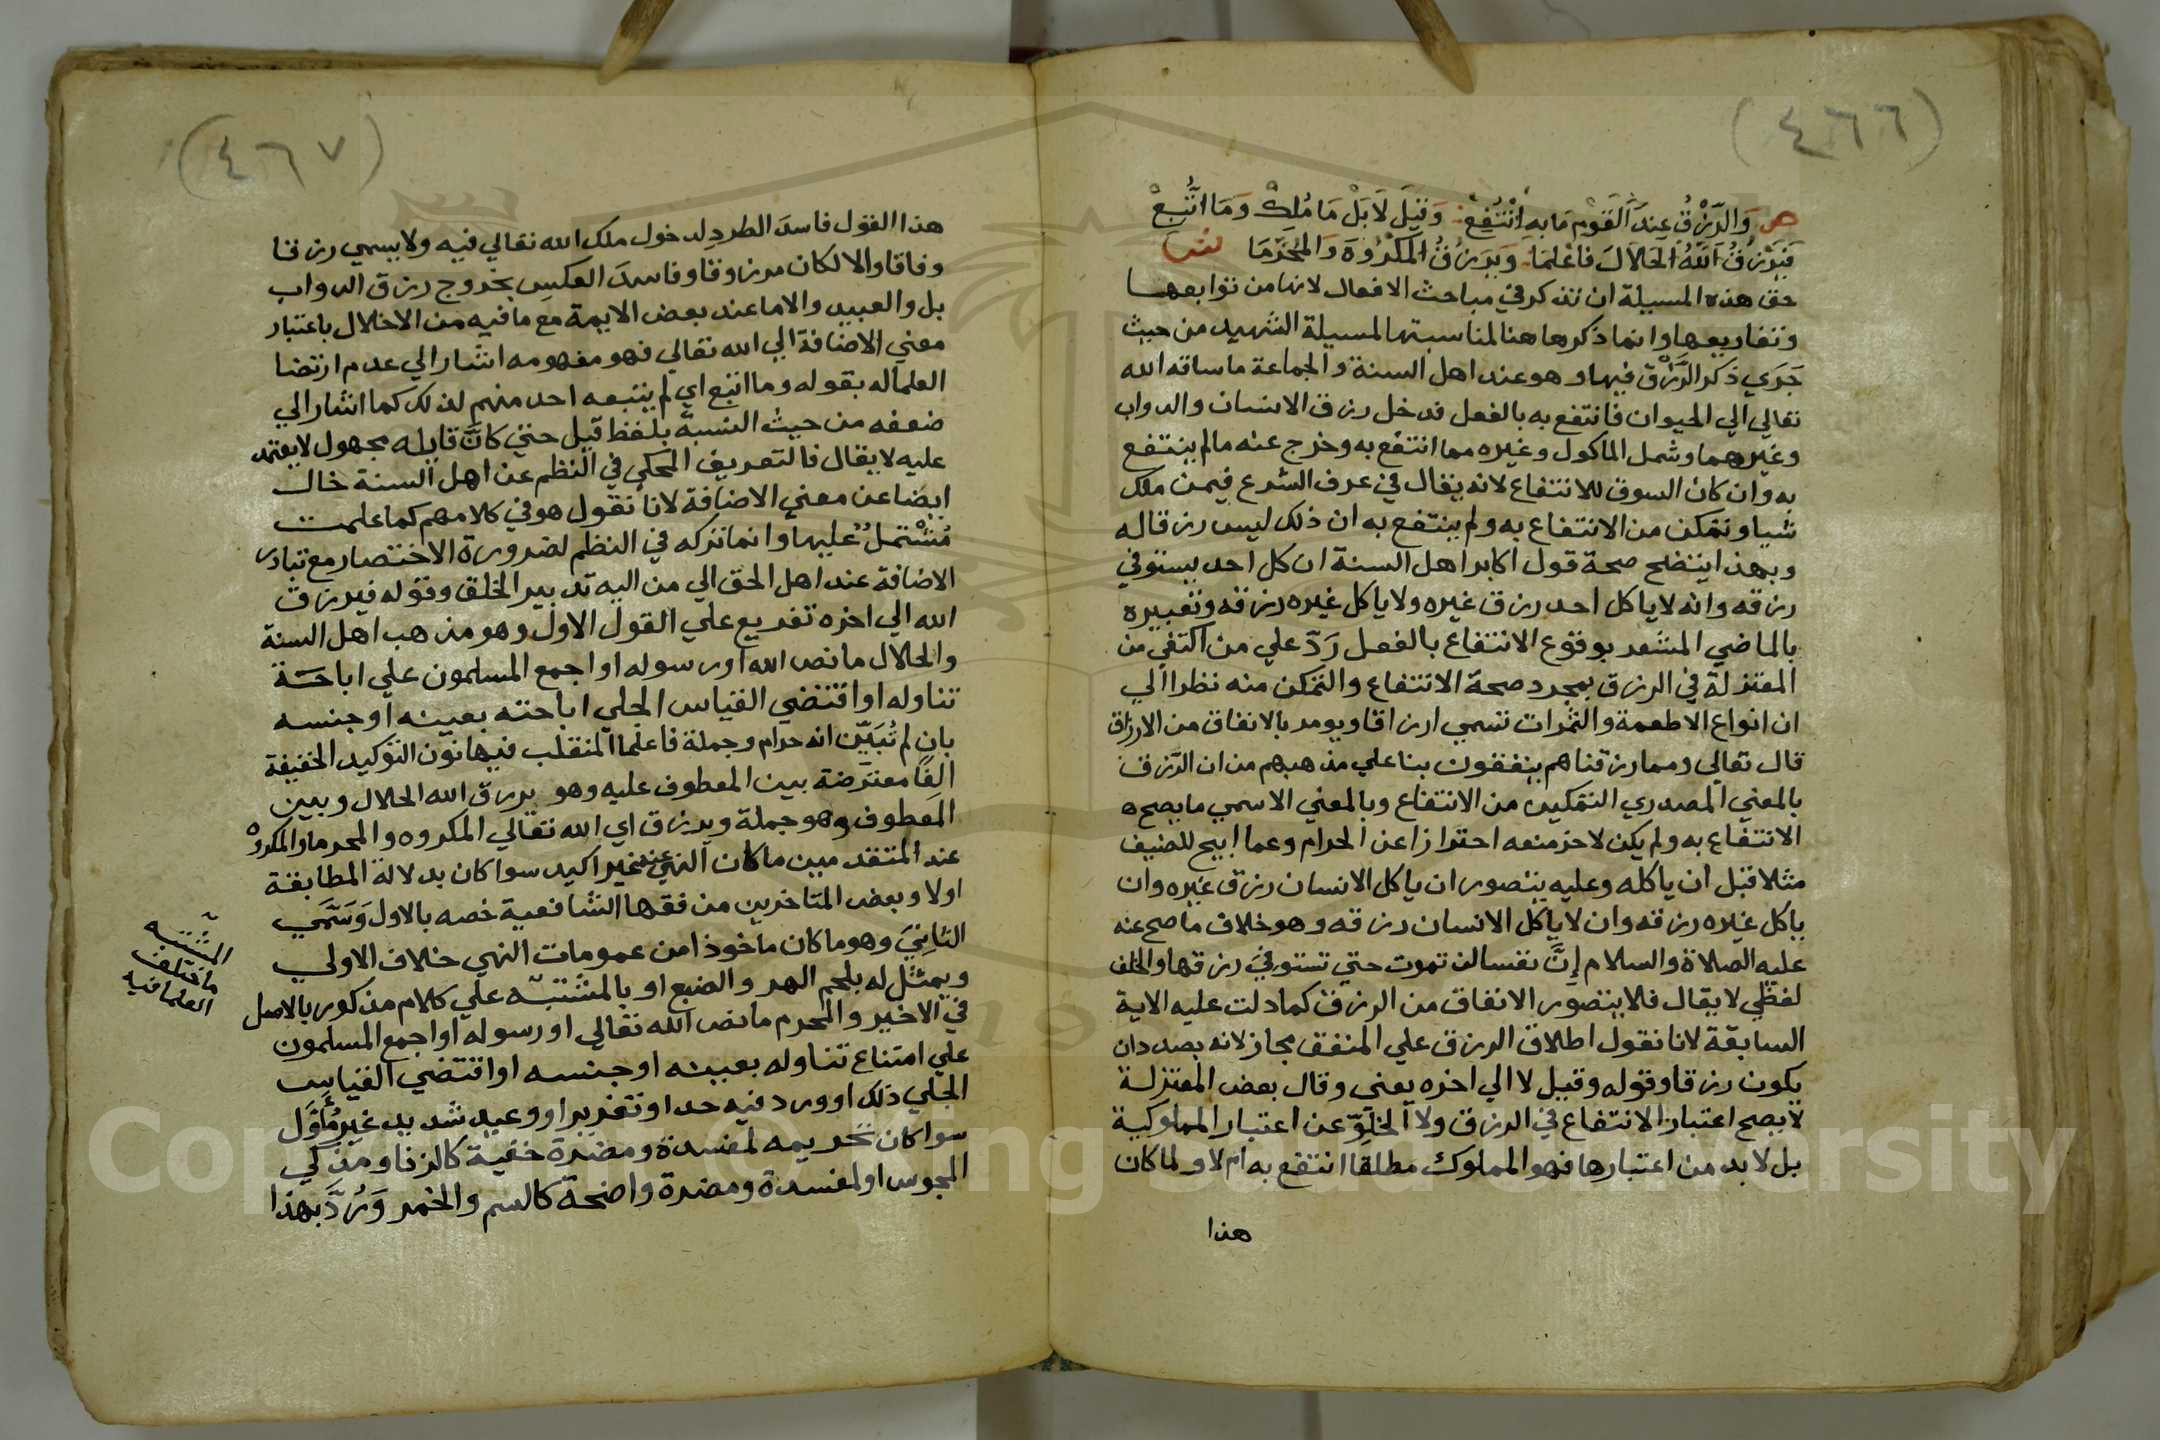 (٤٦٦)
ص وَالرِّزْقُ عِنْدَ الْقَوْمِ مَا بِهِ انْتُفِعْ وَقِيلَ لَا بَلْ مَا مُلِكْ وَمَا اتُّبِعْ
فَيَرْزُقُ اللَّهُ الحَلَالَ فَاعْلَمَا وَيَرْزُقُ المَكْرُوهَ وَالمُحَرَّمَا ش
حق هذه المسيلة ان تذكر في مباحث الافعال لانها من توابعها
وتفاريعها وانما ذكرها هنا لمناسبتها لمسيلة الشهيد من حيث
جَرَي ذكر الرِّزْق فيها وهو عند اهل السنة والجماعة ما ساقه الله
تعالي الي الحيوان فانتفع به بالفعل فدخل رزق الانسان والدواب
وغيرهما وشمل الماكول وغيره مما انتفع به وخرج عنه ما لم ينتفع
به وان كان السوق للانتفاع لانه يقال في عرف الشرع فيمن ملك
شيا وتمكن من الانتفاع به ولم ينتفع به ان ذلك ليس رزقا له
وبهذا يتضح صحة قول اكابر اهل السنة ان كل احد يستوفي
رزقه وانه لا ياكل احد رزق غيره ولا ياكل غيره رزقه وتعبيره
بالماضي المشعر بوقوع الانتفاع بالفعل رَدّ علي من اكتفي من
المعتزلة في الرزق بمجرد صحة الانتفاع والتمكن منه نظرا الي
ان انواع الاطعمة والثمرات تسمي ارزاقا ويومر بالانفاق من الارزاق
قال تعالي ومما رزقناهم ينفقون بنا علي مذهبهم من ان الرّزق
بالمعني المصدري التمكين من الانتفاع وبالمعني الاسمي ما يصح
الانتفاع به ولم يكن لاحد منعه احترازا عن الحرام وعما ابيح للضيف
مثلا قبل ان ياكله وعليه يتصور ان ياكل الانسان رزق غيره وان
ياكل غيره رزقه وان لا ياكل الانسان رزقه وهو خلاف ما صح عنه
عليه الصلاة والسلام إنَّ نفسا لن تموت حتي تستوفي رزقها والخلف
لفظي لا يقال فلا يتصور الانفاق من الرزق كما دلت عليه الاية
السابقة لانا نقول اطلاق الرزق علي المنفق مجاز لانه بصدد ان
يكون رزقا وقوله وقيل لا الي اخره يعني وقال بعض المعتزلة
لا يصح اعتبار الانتفاع في الرزق ولا الخلوّ عن اعتبار المملوكية
بل لا بد من اعتبارها فهو المملوك مطلقا انتفع به ام لا ولما كان
هذا
(٤٦٧)
هذا القول فاسدَ الطردِ لدخول ملك الله تعالي فيه ولا يسمي رزقا
وفاقا والا لكان مرزوقا وفاسدَ العكسِ بخروج رزق الدواب
بل والعبيد والاما عند بعض الايمة مع ما فيه من الاخلال باعتبار
معني الاضافة الي الله تعالي فهو مفهومه اشار الي عدم ارتضا
العلما له بقوله وما اتبع اي لم يتبعه احد منهم لذلك كما اشار الي
ضعفه من حيث النسبة بلفظ قيل حتي كانَّ قايله مجهول لا يعتمد
عليه لا يقال فالتعريف المحكي في النظم عن اهل السنة خال
ايضا عن معني الاضافة لانا نقول هو في كلامهم كما علمت
مُشْتملٌ عليها وانما تركه في النظم لضرورة الاختصار مع تبادر
الاضافة عند اهل الحق الي من اليه تدبير الخلق وقوله فيرزق
الله الي اخره تفريع علي القول الاول وهو مذهب اهل السنة
والحلال ما نص الله او رسوله او اجمع المسلمون علي اباحة
تناوله او اقتضي القياس الجلي اباحته بعينه او جنسه
بان لم تُبَيّن انه حرام وجملة فاعلما المنقلب فيها نون التوكيد الخفيفة
الفًا معترضة بين المعطوف عليه وهو يرزق الله الحلال وبين
المعطوف وهو جملة ويرزق اي الله تعالي المكروه والمحرما والمكروْ
عند المتقدمين ما كان النهي عنه غير اكيد سوا كان بدلالة المطابقة
اولا وبعض المتاخرين من فقها الشافعية خصه بالاول وَسَمَّي
الثانِيَ وهو ما كان ماخوذا من عمومات النهي خلاف الاولي
ويمثل له بلحم الهر والضبع او بالمشتبه علي كلام مذكور بالاصل
في الاخير والمحرم ما نص الله تعالي او رسوله او اجمع المسلمون
علي امتناع تناوله بعينه او جنسه او اقتضي القياس
الجلي ذلك او ورد فيه حد او تعزير او وعيد شديد غير مُأَوَّل
سوا كان تحريمه لمفسدة ومضرة خفية كالزنا ومذكي
المجوس او لمفسدة ومضرة واضحة كالسم والخمر وَرُدَّ بهذا
المشتبه
ما اختلف
العلما فيه